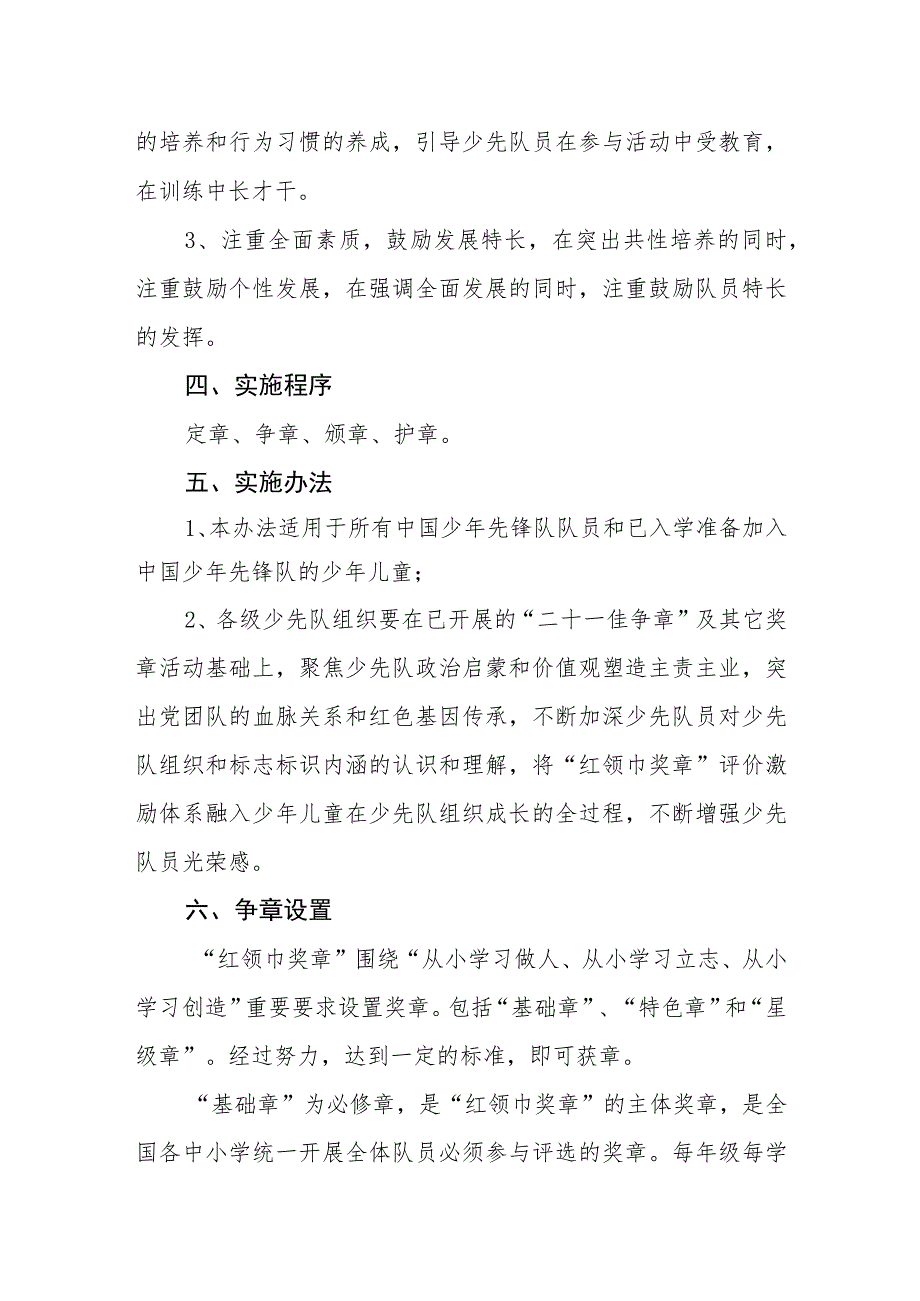 的培养和行为习惯的养成，引导少先队员在参与活动中受教育，
在训练中长才干。
3、注重全面素质，鼓励发展特长，在突出共性培养的同时，
注重鼓励个性发展，在强调全面发展的同时，注重鼓励队员特长
的发挥。
四、实施程序
定章、争章、颁章、护章。
五、实施办法
1、本办法适用于所有中国少年先锋队队员和已入学准备加入
中国少年先锋队的少年儿童；
2、各级少先队组织要在已开展的“二十一佳争章”及其它奖
章活动基础上，聚焦少先队政治启蒙和价值观塑造主责主业，突
出党团队的血脉关系和红色基因传承，不断加深少先队员对少先
队组织和标志标识内涵的认识和理解，将“红领巾奖章”评价激
励体系融入少年儿童在少先队组织成长的全过程，不断增强少先
队员光荣感。
六、争章设置
“红领巾奖章”围绕“从小学习做人、从小学习立志、从小
学习创造”重要要求设置奖章。包括“基础章”、“特色章”和“星
级章”。经过努力，达到一定的标准，即可获章。
“基础章”为必修章，是“红领巾奖章”的主体奖章，是全
国各中小学统一开展全体队员必须参与评选的奖章。每年级每学